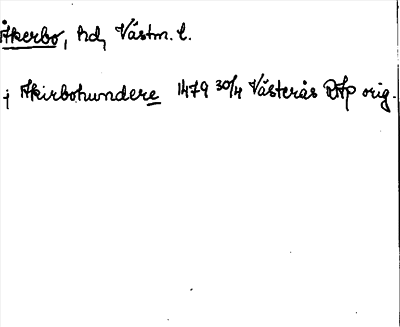 Åkerbo, hd, Västm. l.
j Akirbohundere 1479 30/4 Västerås RAp orig.